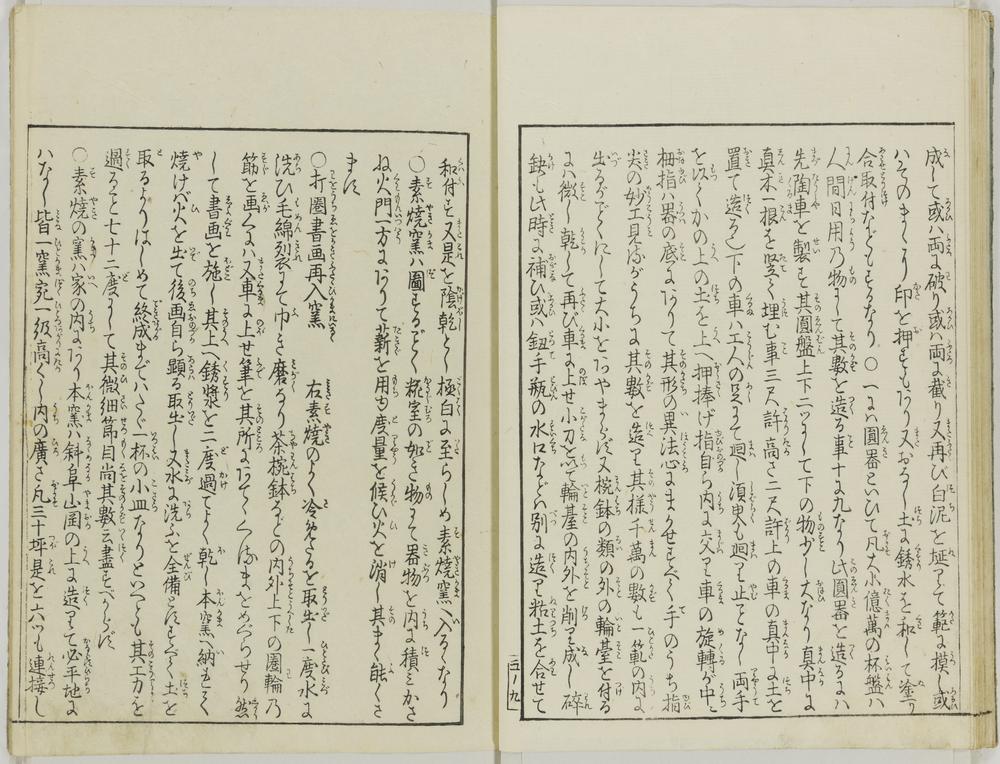 成して或ハ両に破り或ハ両に截り又再び白泥を埏りて範に摸し或
ハそのまゝより印を押すもあり又おなし土に銹水を和して塗り
合取付などもするなり ○一に圓器といひて凡大小億萬の杯盤ハ
人間日用乃物にして其數を造る事十に九なり此圓器を造るにハ
先陶車を製す其圓盤上下二ツにして下の物少し大なり真中に
真木一根を竪て埋む事三尺許高さ二尺許上の車の真中に土を
置て造るべし下の車ハ工人の足にて廻し須臾も廻りて止となし両手
を以てかの上の土を上へ押捧げ指自ら内に交りて車の旋轉が中に
拇指ハ器の底にありて其形の異法心にまかせすべて手のうち指
尖の妙工見るがうちに其數を造りて其様千萬の數も一範の内に
出るがごとくにして大小をあやまらず又椀鉢の類の外の輪臺を付る
にハ微し乾して再び車に上せ小刀を以て輪䑓の内外を削りて成し碎
鈌も此時に補ひ或ハ鈕手瓶の水口などハ別に造りて粘土を合せて
五ノ九
和付す又是を陰乾し極白に至らしめ素焼窯へ入るゝなり
○素焼窯ハ圖するごとく糀室の如き物にて器物を内に積ミかさ
ね火門一方にありて薪を用ゆ度量を候ひ火を消し其まゝ能くさ
ます
○打圏書画再入窯 右素焼のよく冷めたるを取出し一度水に
洗ひ毛綿裂にて巾き磨るなり茶椀鉢などの内外上下の圏輪乃
筋を画くにハ又車に上せ筆を其所にあてゝくるまをめぐらせり然
して書画を施し其上へ銹漿を二度過てよく乾し本窯へ納むよく
焼けバ火を出て後画自ら顕る取出し又水に洗ふを全備とはすべて土を
取るよりはじめて終成までハたゞ一杯の小皿なりといへども其工力を
過ると七十二度にして其微細節目尚其數云盡すべからず
○素焼の窯ハ家の内にあり本窯ハ斜阜山岡の上に造りて必平地に
ハなし皆一窯宛一級高くし内の廣さ凡三十坪是を六ツも連接し